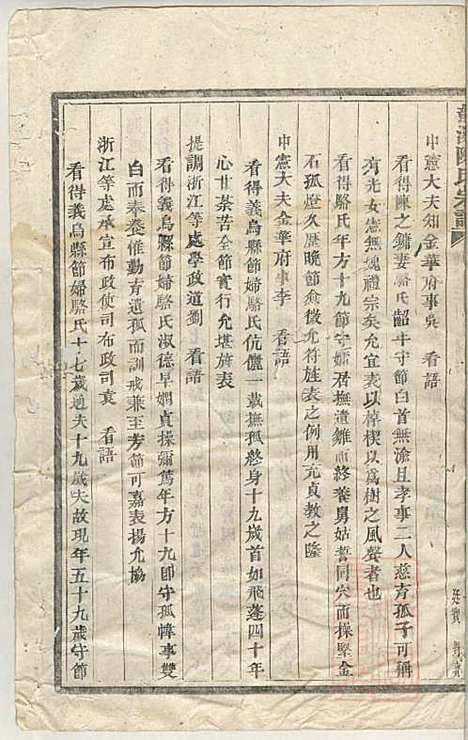 中憲大夫知金華府事吳 看語
看得陳之鏞妻駱氏韶年守節白首無渝且孝事二人慈育孤子可稱
有光女憲無愧禮宗矣允宜表以棹楔以為樹之風聲者也
看得駱氏年方十九節守孀居撫遺雛而終養舅姑誓同穴而操堅金
石孤燈久歷晚節愈徵允符旌表之例用充貞教之隆
中憲大夫金華府事李 看語
看得義烏縣節婦駱氏伉儷一載撫孤終身十九歲首如飛蓬四十年
心甘荼苦全節實行允堪旌表
提調浙江等處學政道劉 看語
看得義烏縣節婦駱氏淑德早嫻貞操彌篤年方十九卽守孤幃事雙
白而奉養惟勤育遺孤而訓戒兼至芳節可嘉表揚允協
浙江等處承宣布政使司布政司袁 看語
看得義烏縣節婦駱氏十七歲適夫十九歲夫故現年五十九歲守節